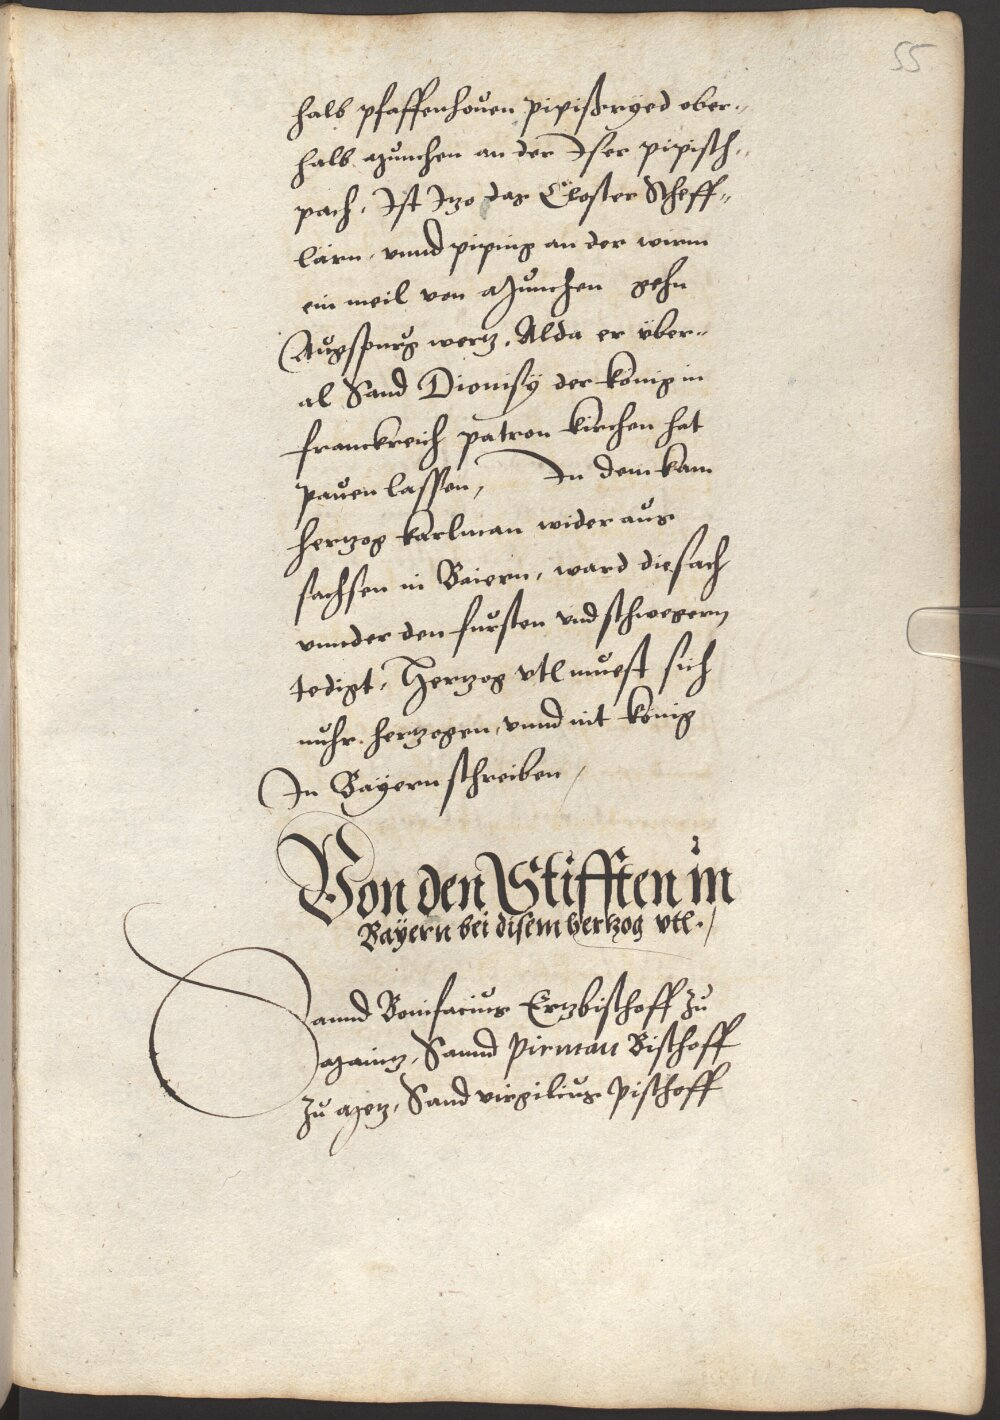 55
halb pfaffenhouen pipißryed ober„
halb München an der Iser pipisch„
pach, Ist Itzo das Closter Scheff„
lärn, vnnd piping an der wirm
ein meil von München gehn
Augspurg wertz, Alda er über„
al Sand Dionisÿ der könig in
franckreich patron kirchen hat
pauen lassen, In dem kam
hertzog karlman wider aus
sachsen in Baiern, ward die sach
vnnder den fürsten vnd schwegern
tedigt, Hertzog vtl muest sich
nuhr hertzogen, vnnd nit könig
In Baÿern schreiben /
Von den Stifften in
Baÿern bei disem hertzog vtl. /
Sannd Bonifacius Ertzbischoff zu
Maintz, Sannd Pirman Bischoff
zu Metz, Sand virgilius Pischoff